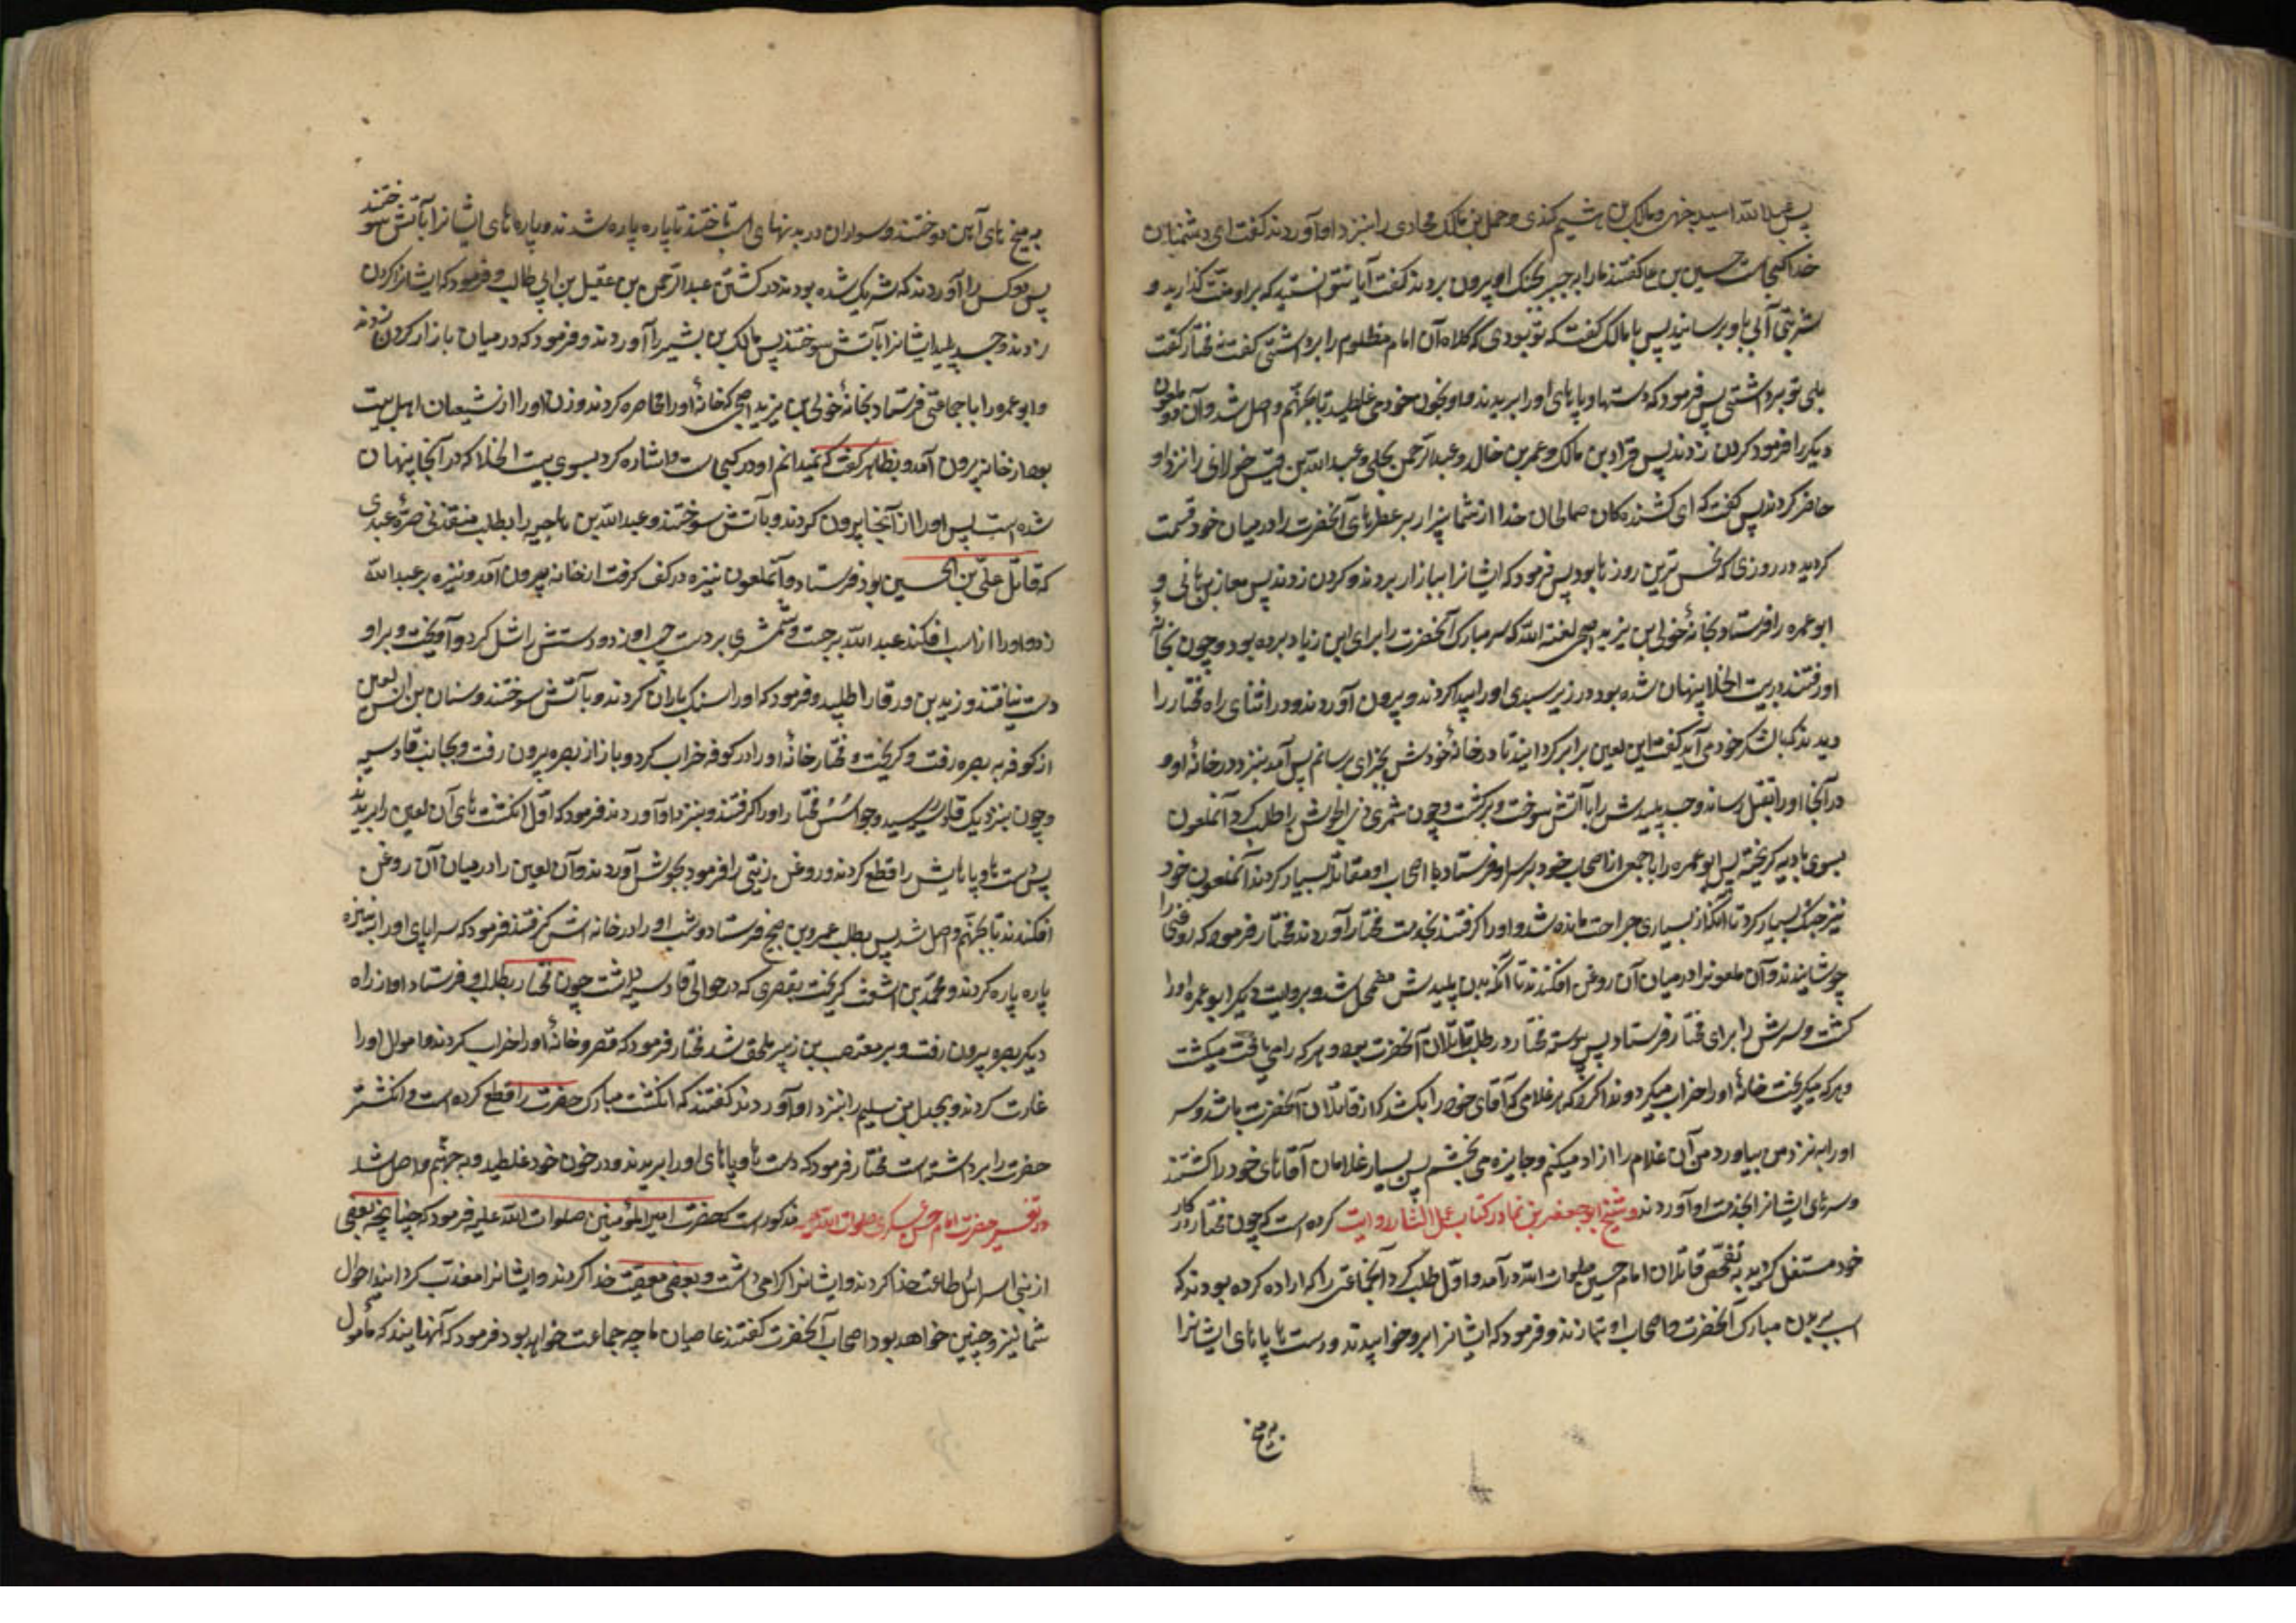 پس عبدالله اسید جهنی و مالک بن هشیم کندی و حمل بن مالک محاربی را بنزد او آوردند گفت ای دشمنان
خدا کجاست حسین بن علی گفتند ما را به جبر بجنک او بیرون بردند گفت آیا نتوانستید که بر او منت گذارید و
شربتی آبی باو برسانید پس با مالک گفت که تو بودی که کلاه آن امام مظلوم را برداشتی گفت نه مختار گفت
بلی تو برداشتی پس فرمود که دستها و پاهای او را بریدند و او بخون خود می غلطید تا بجهنم واصل شد و آن دو ملعون
دیگر را فرمود گردن زدند پس قراد بن مالک و عمر بن خالد و عبدالرحمن بجلی و عبدالله بن قیس خولانی را نزد او
حاضر کردند پس گفت که ای کشنده کان صالحان خدا از شما بیزار بر عطرهای آنحضرت را در میان خود قسمت
کردید در روزی که نحس ترین روزها بود پس فرمود که ایشانرا ببازار بردند و گردن زدند پس معاذ بن هانی و
ابو عمره را فرستاد بخانهٔ خولی ابن یزید اصبحی لعنة الله که سر مبارک آنحضرت را برای ابن زیاد برده بود و چون بخانهٔ
او رفتند در بیت الخلا پنهان شده بود در زیر سبدی او را پیدا کردند و بیرون آوردند و در اثنای راه مختار را
دیدند که با لشکر خود می آید گفت این لعین برابر گردانید تا در خانهٔ خودش بجزای برسانم پس آمد بنزد در خانهٔ او و
در آنجا او را بقتل رساند و جسد پلیدش را با آتش سوخت و برگشت و چون شمر ذی الجوشن را طلب کرد آنملعون
بسوی بادیه گریخت پس ابو عمره را با جمعی از اصحاب خود بر سر او فرستاد با اصحاب او مقاتلهٔ بسیار کردند آنملعون خود
نیز جنک بسیار کرد تا آنکه از بسیاری جراحت مانده شد و او را گرفتند بخدمت مختار آوردند مختار فرمود که روغنی را
جوشانیدند و آن ملعونرا در میان آن روغن افکندند تا آنکه بدن پلیدش مضمحل شد و بروایت دیگر ابو عمره او را
کشت و سرش را برای مختار فرستاد پس پیوسته مختار در طلب قاتلان آنحضرت بود و هر که را می یافت میکشت
و هر که میگریخت خانهٔ او را خراب میکرد و ندا کرد که هر غلامی که آقای خود را بکشد که از قاتلان آنحضرت باشد و سر
او را به نزد من بیاورد من آن غلام را آزاد میکنم و جایزه می بخشم پس بسیار غلامان آقاهای خود را کشتند
و سرهای ایشانرا بخدمت او آوردند و شیخ ابو جعفر بن نما در کتاب عمل الثار روایت کرده است که چون مختار در کار
خود مستقل گردید به تفحص قاتلان امام حسین صلوات الله در آمد و اول طلب کرد آنجماعتی را که اراده کرده بودند که
اسب بر بدن مبارک آنحضرت و اصحاب او بتازند و فرمود که ایشانرا برو خوابیدند و دست ها پاهای ایشانرا
به میخ
به میخ های آهن دوختند و سواران در بدنهای اسب تاختند تا پاره پاره شدند و پاره های ایشانرا بآتش سوختند
پس دو کس را آوردند که شریک شده بودند در کشتن عبدالرحمن بن عقیل بن ابی طالب و فرمود که ایشانرا گردن
زدند و جسد پلید ایشانرا بآتش سوختند پس مالک بن بشیر را آوردند و فرمود که در میان بازار گردن زدند
و ابو عمرو را با جماعتی فرستاد بخانهٔ خولی بن یزید اصبحی که خانهٔ او را محاصره کردند و زن او را از شیعیان اهل بیت
بود از خانه بیرون آمد و بظاهر گفت که نمیدانم او در کجاست و اشاره کرد بسوی بیت الخلا که در آنجا پنهان
شده است پس او را از آنجا بیرون کردند و بآتش سوختند و عبدالله بن ناجیه را بطلب منقذ بن مره عبدی
که قاتل علی بن الحسین بود فرستاد و آنملعون نیزه در کف گرفت از خانه بیرون آمد و نیزه بر عبدالله
زد و او را از اسب افکند عبدالله برجست و شمشیری بر دست چپ او زد و دستش را شل کرد و آویخت و بر او
دست نیافتند و زید بن ورقا را طلبید و فرمود که او را سنک باران کردند و بآتش سوختند و سنان بن انس لعین
از کوفه به بصره رفت و گریخت و مختار خانهٔ او را در کوفه خراب کرد و باز از بصره بیرون رفت و بجانب قادسیه
و چون بنزدیک قادسیه رسید و جواسیس مختار او را گرفتند و بنزد او آوردند فرمود که اول انگشت های آن لعین را بریدند
پس دست ها و پاهایش را قطع کردند و روغن زیتی را فرمود بجوش آوردند و آن لعین را در میان آن روغن
افکندند تا بجهنم واصل شد پس بطلب عمرو بن صبیح فرستاد و شب او را در خانه اش گرفتند فرمود که سراپای او را بنیزه
پاره پاره کردند و محمد بن اشعث گریخت بقصری که در حوالی قادسیه داشت چون مختار بطلب او فرستاد او از راه
دیگر بدر بیرون رفت و بر مصعب بن زبیر ملحق شد مختار فرمود که قصر و خانهٔ او را خراب کردند و اموال او را
غارت کردند و بجدل بن سلیم را بنزد او آوردند گفتند که انگشت مبارک حضرت را قطع کرده است و انگشتر
حضرت را برداشته است مختار فرمود که دست ها و پاهای او را بریدند و در خون خود غلطید و به جهنم واصل شد
در تفسیر حضرت امام حسن عسکری صلوات الله علیه مذکور است که حضرت امیر المؤمنین صلوات الله علیه فرمود که چنانچه بعضی
از بنی اسرائیل طاعت خدا کردند و ایشانرا گرامی داشت و بعضی معصیت خدا کردند و ایشانرا معذب گردانید احوال
شما نیز چنین خواهد بود اصحاب آنحضرت گفتند عاصیان ما چه جماعت خواهد بود فرمود که آنهایند که مأمول